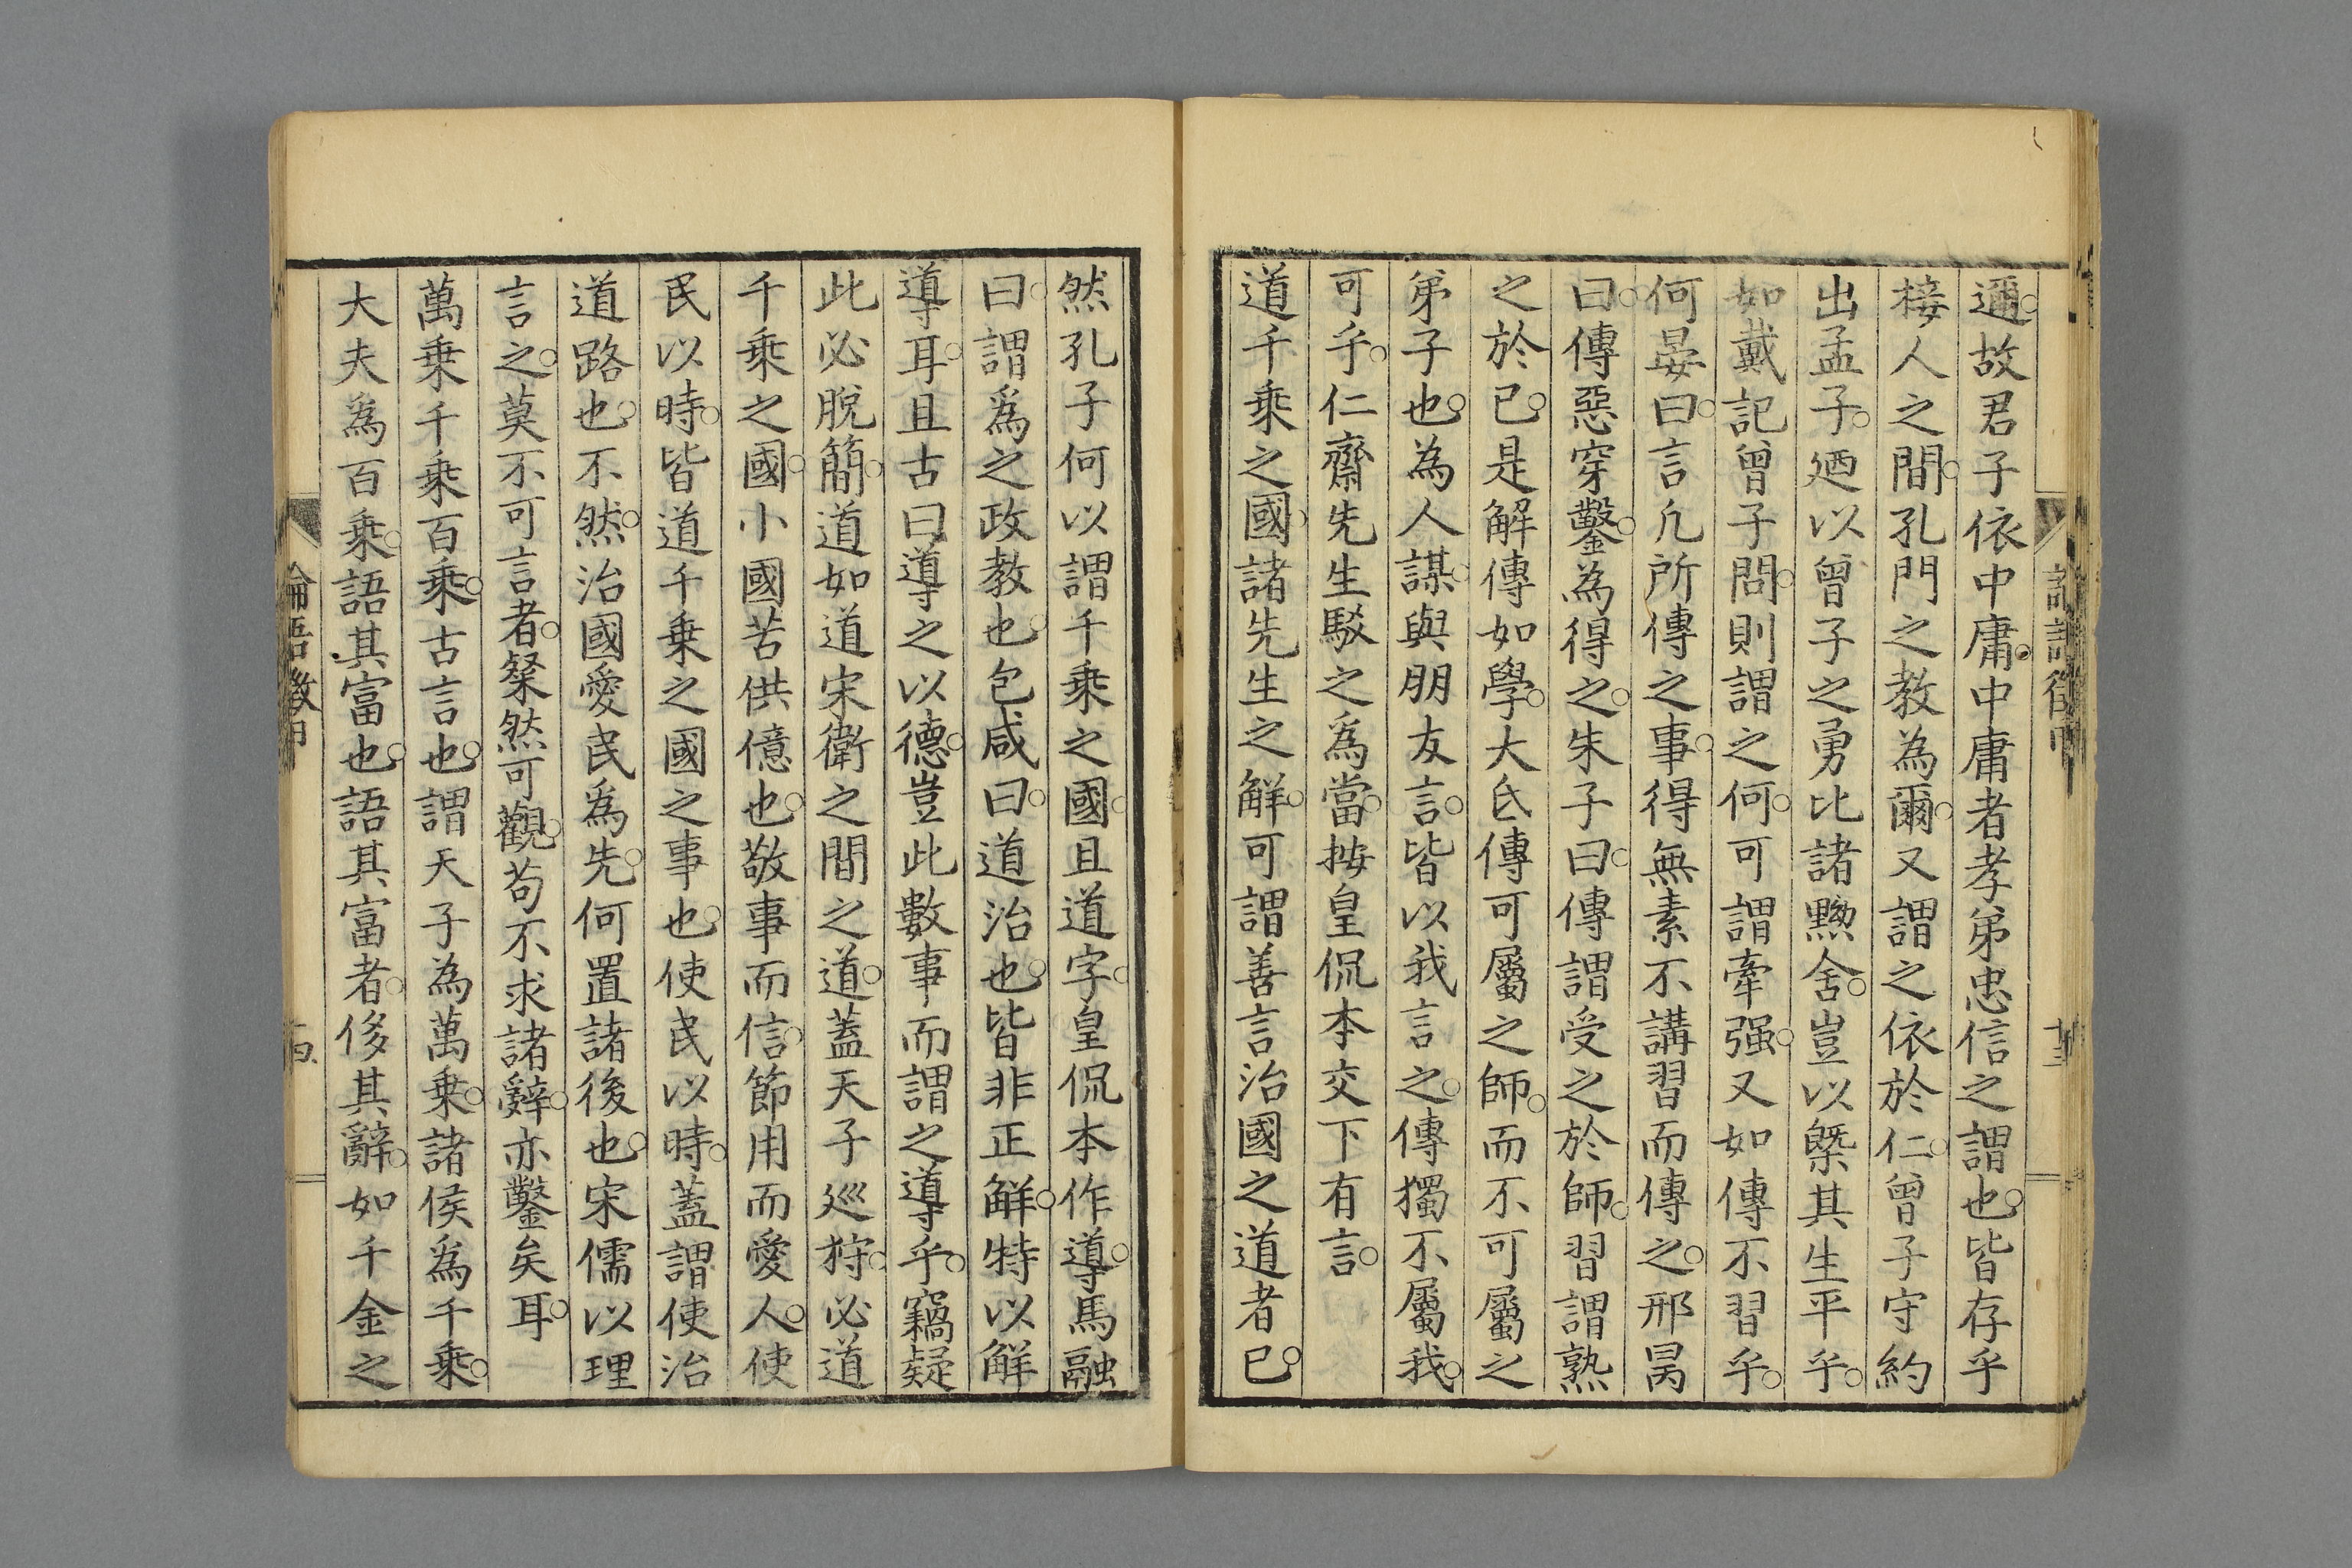 邇故君子依中庸中庸者孝弟忠信之謂也皆存乎
接人之間孔門之教為爾又謂之依於仁曾子守約
出孟子廼以曾子之勇比諸黝舍豈以槩其生平乎
如戴記曾子問則謂之何可謂牽强又如傳不習乎
何晏曰言凢所傳之事得無素不講習而傳之邢昺
曰傳惡穿鑿為得之朱子曰傳謂受之於師習謂熟
之於已是解傳如學大氐傳可屬之師而不可屬之
弟子也為人謀與朋友言皆以我言之傳獨不屬我
可乎仁齋先生駁之爲當按皇侃本交下有言
道千乗之國諸先生之觧可謂善言治國之道者已
然孔子何以謂千乗之國且道字皇侃本作導馬融
曰謂爲之政教也包咸曰道治也皆非正觧特以觧
導耳且古曰導之以德豈此數事而謂之導乎竊疑
此必脫簡道如道宋衛之間之道蓋天子巡狩必道
千乗之國小國苦供億也敬事而信節用而愛人使
民以時皆道千乗之國之事也使民以時蓋謂使治
道路也不然治國愛民爲先何置諸後也宋儒以理
言之莫不可言者粲然可觀苟不求諸辭亦鑿矣耳
萬乗千乗百乗古言也謂天子為萬乗諸侯爲千乗
大夫為百乗語其富也語其富者侈其辭如千金之
論語徵甲
十四